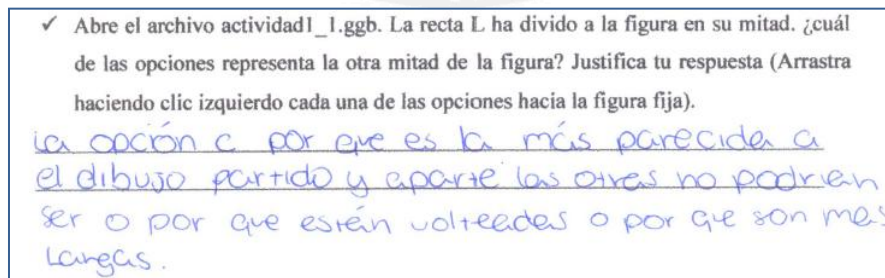 ✓ Abre el archivo actividad1_1.ggb. La recta L ha divido a la figura en su mitad. ¿cuál
de las opciones representa la otra mitad de la figura? Justifica tu respuesta (Arrastra
haciendo clic izquierdo cada una de las opciones hacia la figura fija).
La opción c por que es la más parecida a
el dibujo partido y aparte las otras no podrían
ser o por que están volteadas o por que son mas
Largas.